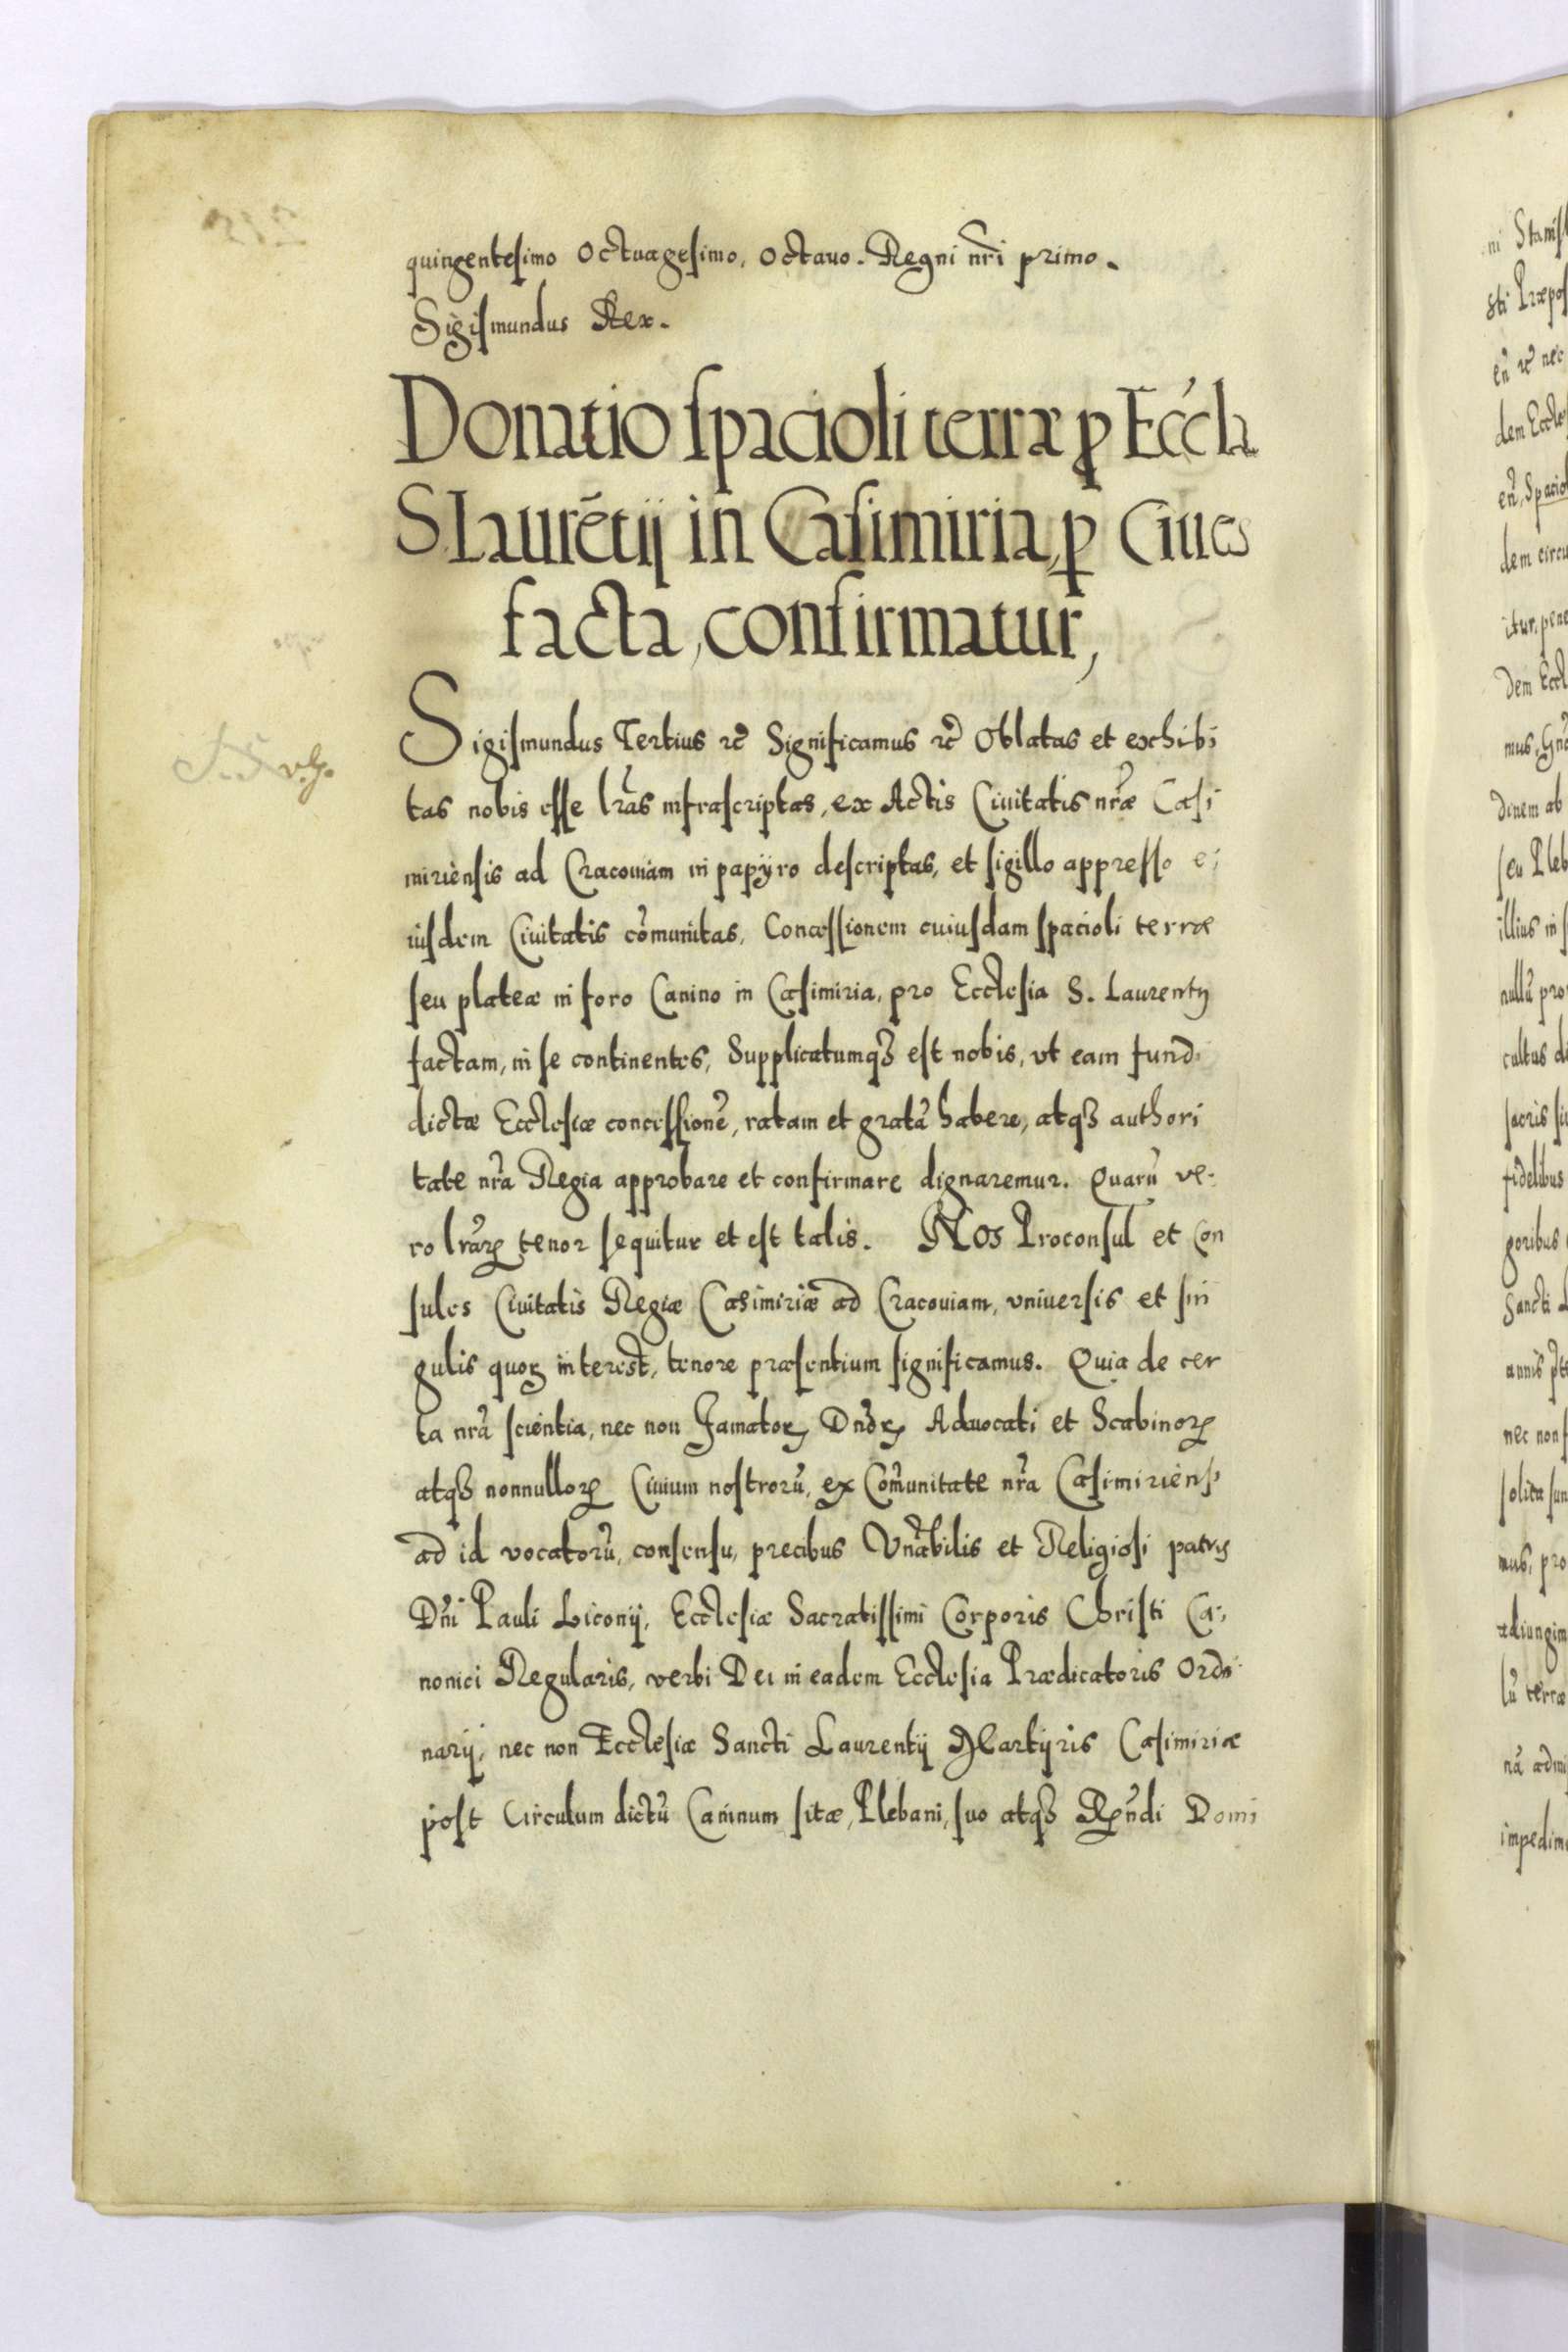 quingentesimo Octuagesimo, Octauo. Regni nr̃i primo.
Sigismundus Rex.
Donatio spacioli terræ ꝓ Eccĺa
S. Laurẽtij in Casimiria, ꝑ Ciues
facta, confirmatur,
Sigismundus Tertius ⁊c̃ Significamus ⁊c̃ Oblatas et exhibi
tas nobis esse lr̃as infrascriptas, ex Actis Ciuitatis nr̃æ Casi
miriensis ad Cracouiam in papyro descriptas, et sigillo appresso e
iusdem Ciuitatis cõmunitas, Concessionem cuiusdam spacioli terræ
seu plateæ in foro Canino in Casimiria, pro Ecclesia S. Laurentij
factam, in se continentes, Supplicatumqꝫ est nobis, vt eam fund.
dictæ Ecclesiæ concessionẽ, ratam et gratã habere, atqꝫ authori
tate nr̃a Regia approbare et confirmare dignaremur. Quarũ ve-
ro lr̃aꝝ tenor sequitur et est talis. Nos Proconsul et Con
sules Ciuitatis Regiæ Casimiriæ ad Cracouiam, vniuersis et sin
gulis quoꝝ interest, tenore præsentium significamus. Quia de cer
ta nr̃a scientia, nec non Famatoꝝ Dnõꝝ Aduocati et Scabinoꝝ
atqꝫ nonnulloꝝ Ciuium nostrorũ, ex Com̃unitate nr̃a Casimiriens̃
ad id vocatorũ, consensu, precibus Vnãbilis et Religiosi patris
Dñi Pauli Liconij, Ecclesiæ Sacratissimi Corporis Christi Ca-
nonici Regularis, verbi Dei in eadem Ecclesia Prædicatoris Ordi
narij, nec non Ecclesiæ Sancti Laurentij Martyris Casimiriæ
post Circulum dictũ Caninum sitæ, Plebani, suo atqꝫ Rñdi Domi